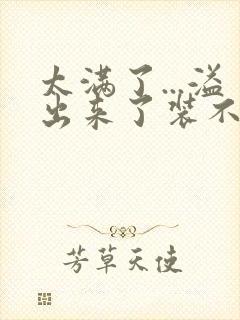 太满了...溢
出来了装不
芳草天使